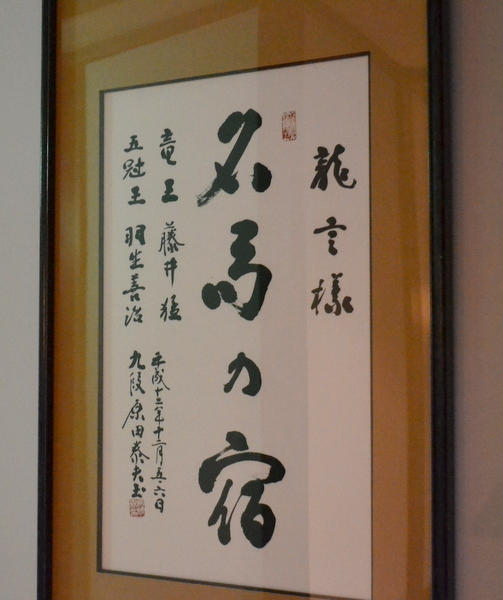 龍言様
名馬の宿
竜王 藤井猛
五冠王 羽生善治
平成十二年十二月五、六日
九段 原田泰夫書